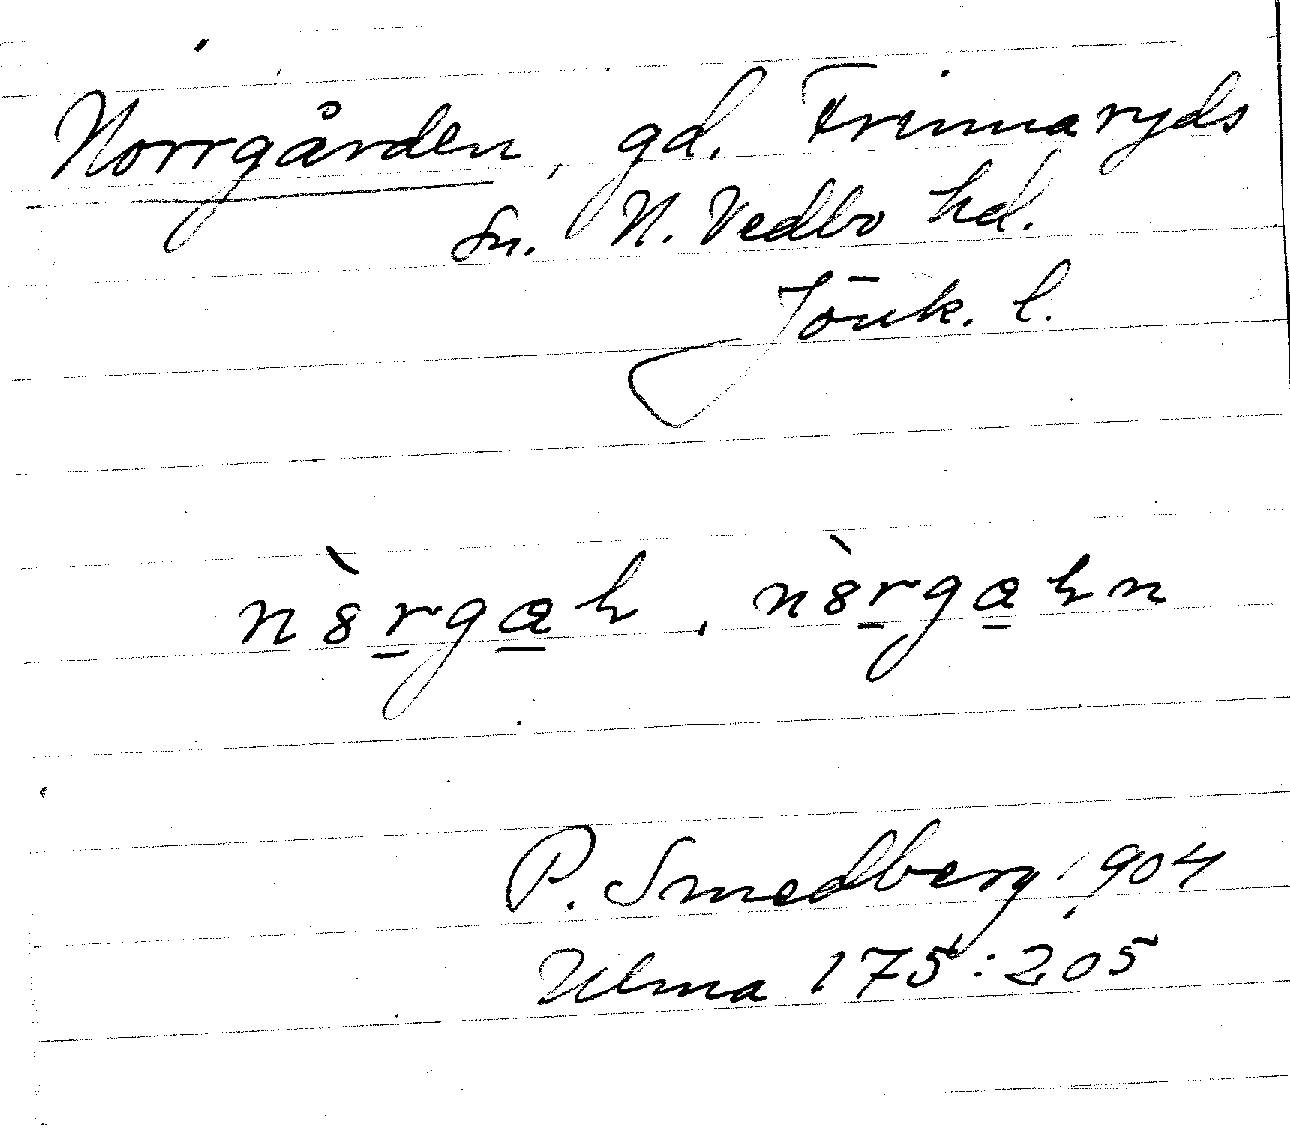 Norrgården, gd. Frinnaryds
sn. N. Vedbo hd.
Jönk. l.
P. Smedberg 1904
Ulma 175:205